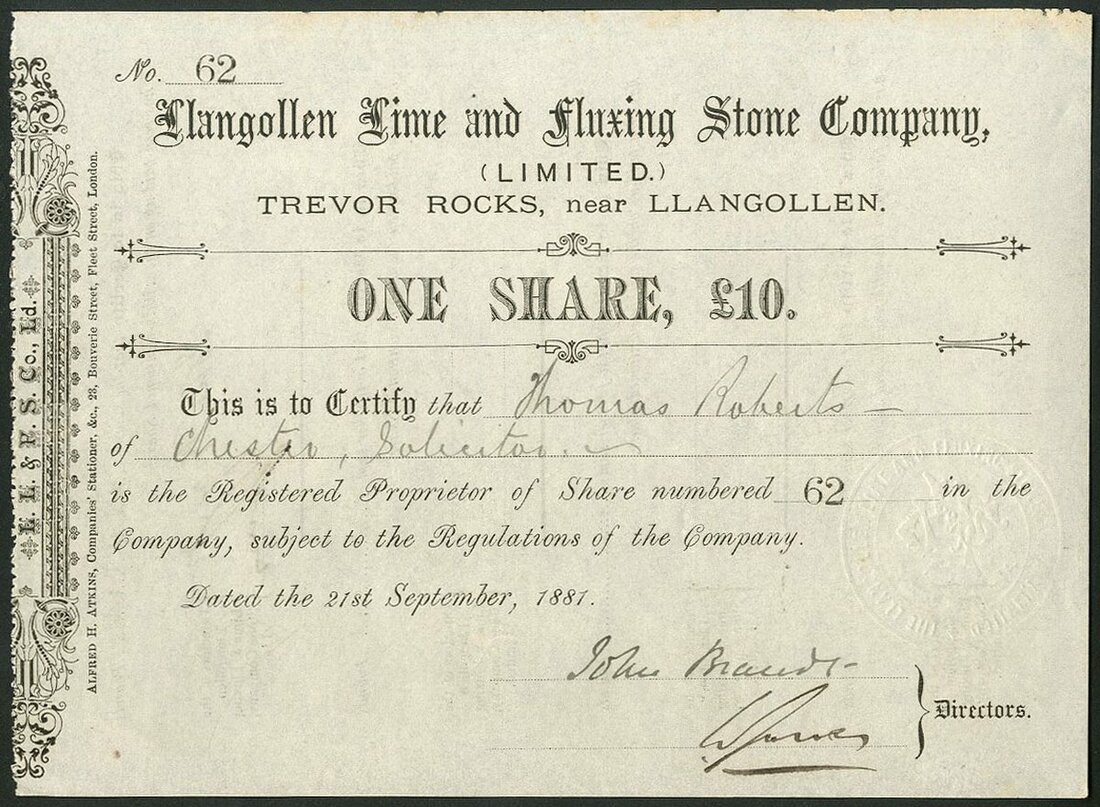 No. 62
Llangollen Lime and Fluxing Stone Company,
(LIMITED.)
TREVOR ROCKS, near LLANGOLLEN.
ONE SHARE, £10.
This is to Certify that Thomas Roberts —
of Chester, Solicitor.
is the Registered Proprietor of Share numbered 62 in the
Company, subject to the Regulations of the Company.
Dated the 21st September, 1881.
John
Directors.
L. L. & F. S. Co., Ld.
ALFRED H. ATKINS, Companies' Stationer, &c., 23, Bouverie Street, Fleet Street, London.